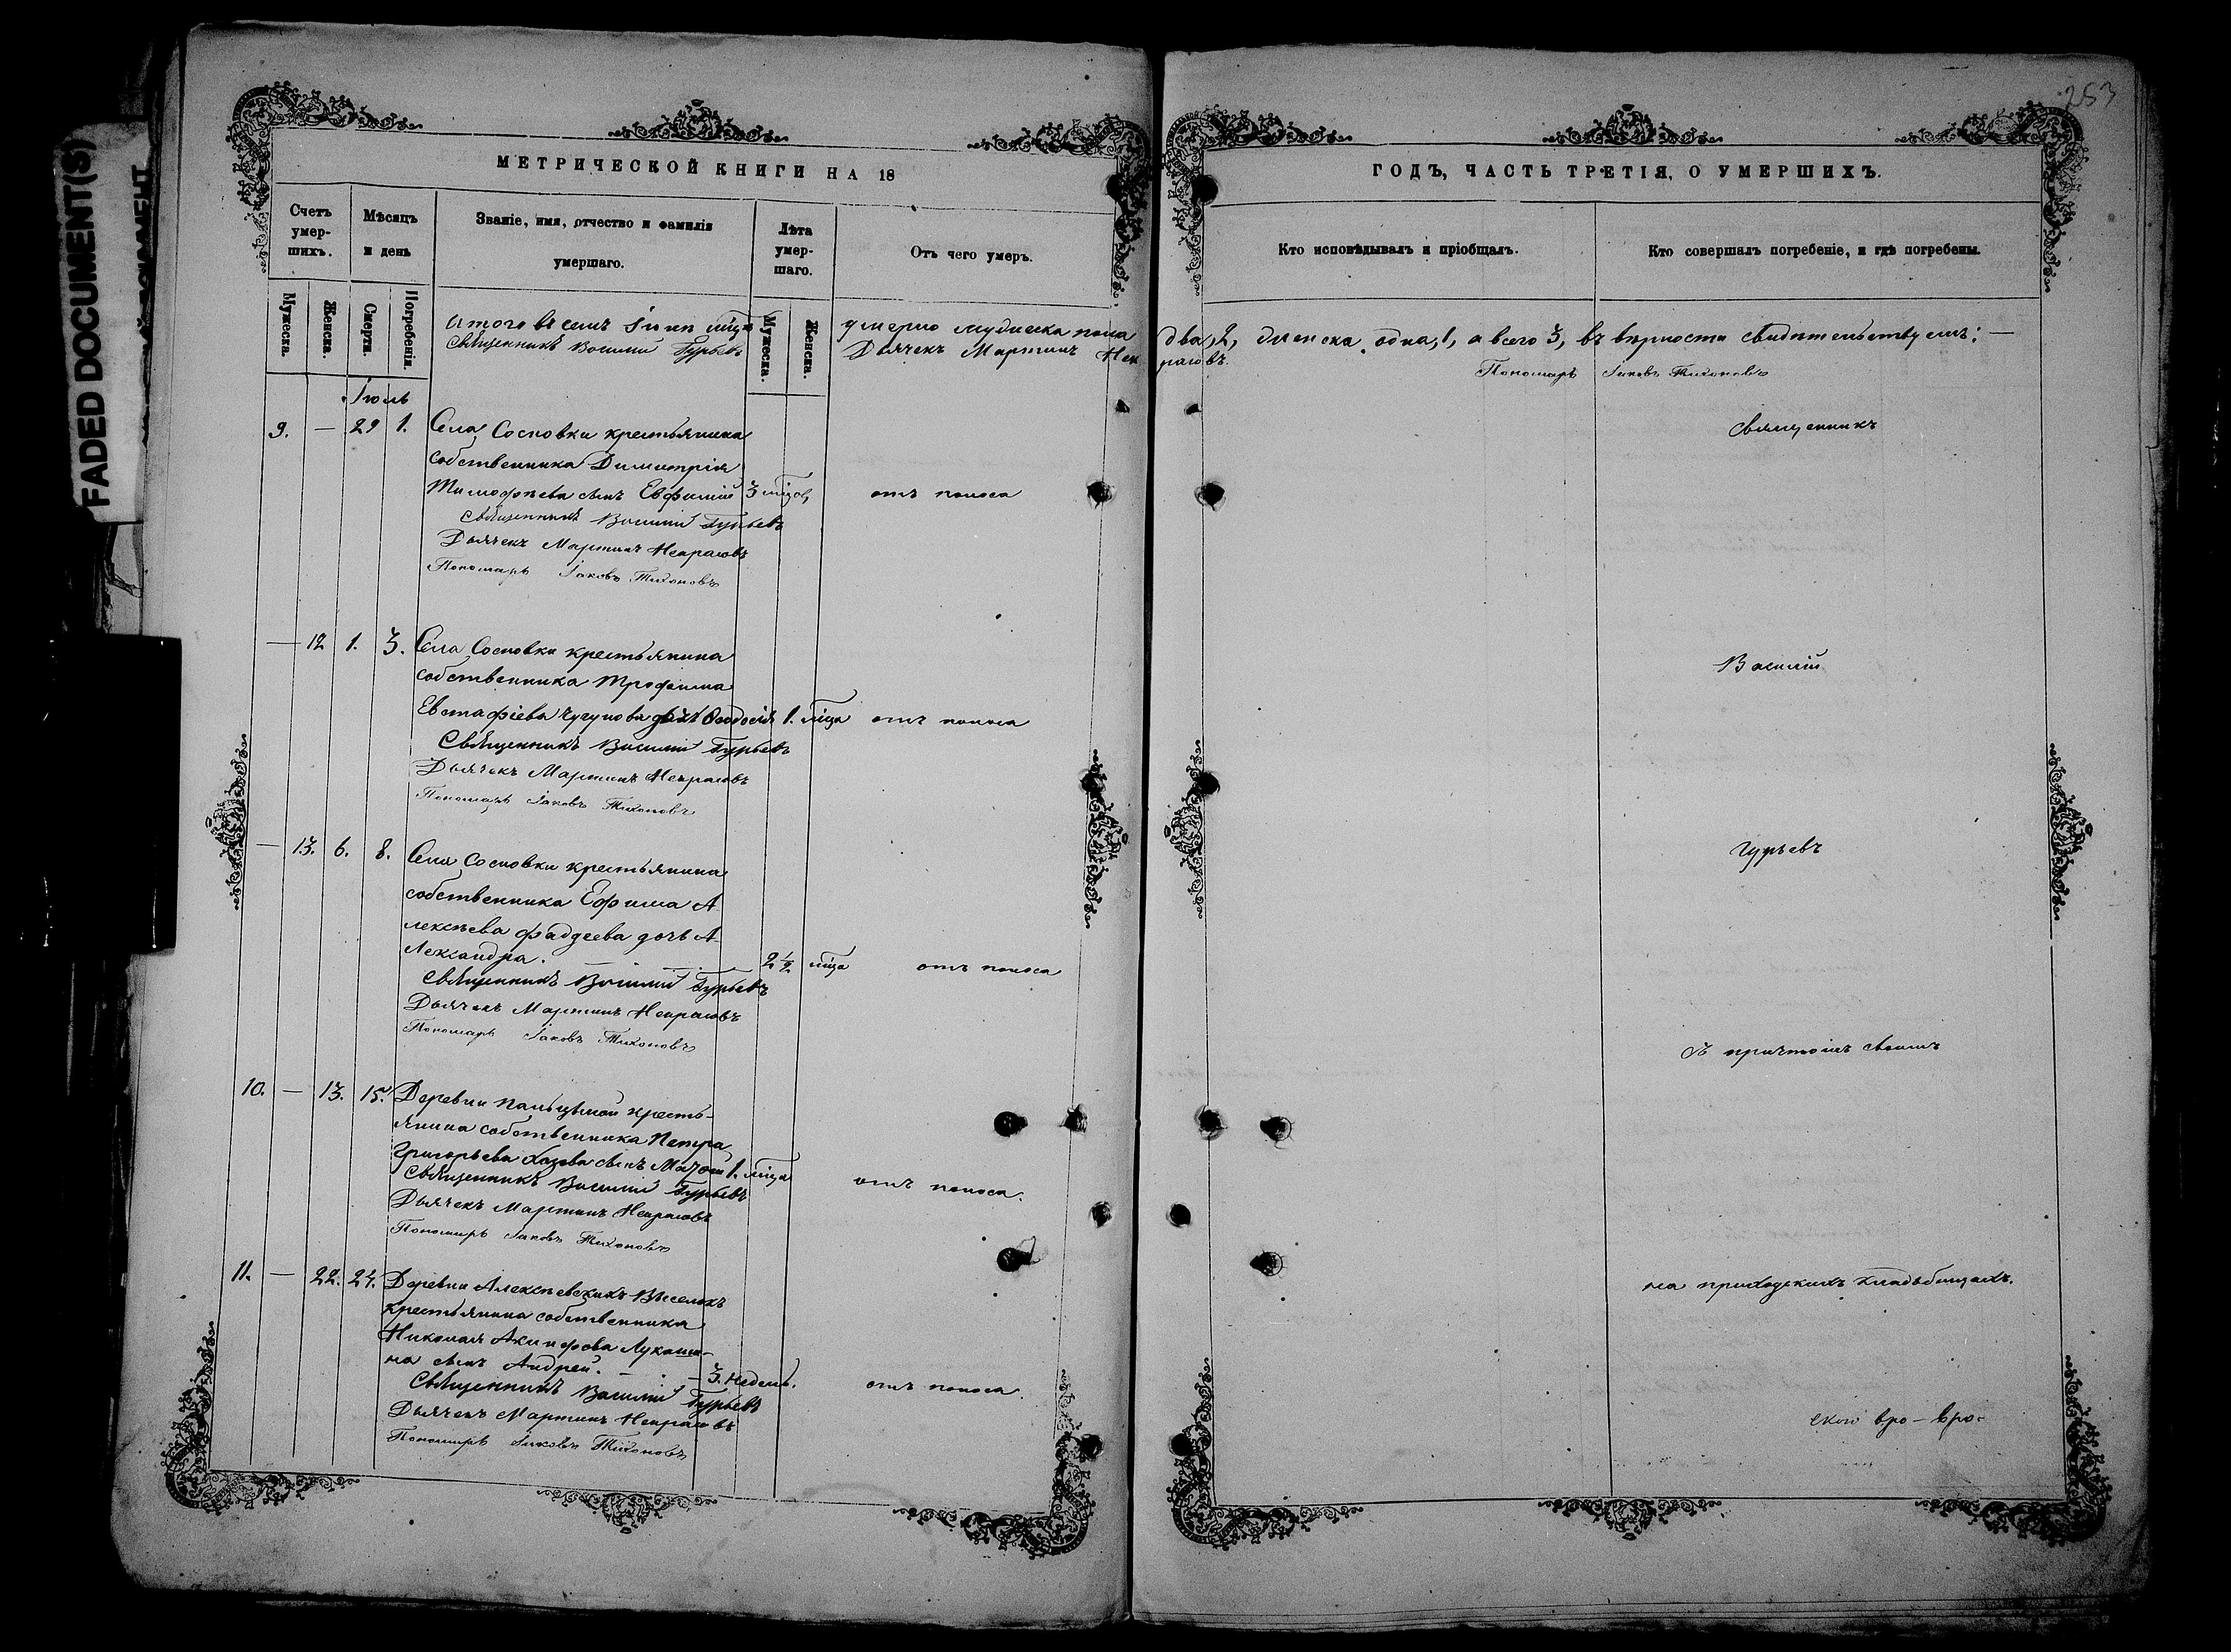 253
FADED DOCUMENT(S)
МЕТРИЧЕСКОЙ КНИГИ НА 18
ГОДЪ, ЧАСТЬ ТРЕТІЯ, О УМЕРШИХЪ.
Счетъ умер-шихъ.
Мѣсяцъ и день
Званіе, имя, отчество и фамилія умершаго.
Лѣта умер-шаго.
Отъ чего умеръ.
Кто исповѣдывалъ и пріобщалъ.
Кто совершалъ погребеніе, и гдѣ погребены.
Мужеска.
Женска.
Смерти.
Погребенія.
Мужеска.
Женска.
Итого въ семъ Іюнѣ мцѣ умерло мужеска пола два, 2, женска одна, 1, а всего 3, въ вѣрности свидѣтельствуемъ: —
Священникъ Василій Гурьевъ Дьячекъ Мартинъ Некрасовъ. Пономарь Іаковъ Тихоновъ
Іюль
9. — 29 1. Села Сосновки крестьянина
собственника Димитрія
Тимофѣева сынъ Евфимій 3 мцов, отъ поноса
Священникъ Василій Гурьевъ
Дьячекъ Мартинъ Некрасовъ
Пономарь Іаковъ Тихоновъ
— 12 1. 3. Села Сосновки крестьянина
собственника Трофима
Евстафіева Чугунова дочь Ѳеодосія 1. мца отъ поноса
Священникъ Василій Гурьевъ
Дьячекъ Мартинъ Некрасовъ
Пономарь Іаковъ Тихоновъ
— 13. 6. 8. Села Сосновки крестьянина
собственника Ефима А-
лексѣева Фаддеева дочь А-
лександра. 2 1/2 мца отъ поноса
Священникъ Василій Гурьевъ
Дьячекъ Мартинъ Некрасовъ
Пономарь Іаковъ Тихоновъ
10. — 13. 15. Деревни кресть-
янина собственника Петра
Григорьева сынъ 1. мца отъ поноса.
Священникъ Василій Гурьевъ
Дьячекъ Мартинъ Некрасовъ
Пономарь Іаковъ Тихоновъ
11. — 22. 24. Деревни Алексѣевскихъ Выселокъ
крестьянина собственника
Николая Акинфова Лукаши-
на сынъ Андрей. — 3. недель. отъ поноса.
Священникъ Василій Гурьевъ
Дьячекъ Мартинъ Некрасовъ
Пономарь Іаковъ Тихоновъ
Священникъ
Василій
Гурьевъ
съ причтомъ своимъ
на приходскихъ кладбищахъ.